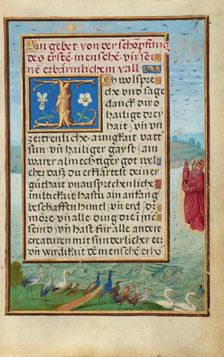 Ain gebet von der schöpfung
des erste mensche vn̄ sei
ne erbärmlichem vall
Ch wolspre
che vn̄ sage
danck dir o
heilige drey
hait, vn̄ vn
zertrenliche ainigkait vatt
sun vn̄ heiliger gayst, ain
warer almechtiger got wel
cher das du erklärtest deiner
güethait vn̄ aussprechenliche
miltigkait hastu am anfang
beschaffen himel vn̄ erd das
mör vn̄ alle ding dariñ seine
vn̄ hast für all ander
creaturen mit sundrer eer
vn̄ wirdikait de mensche erhö